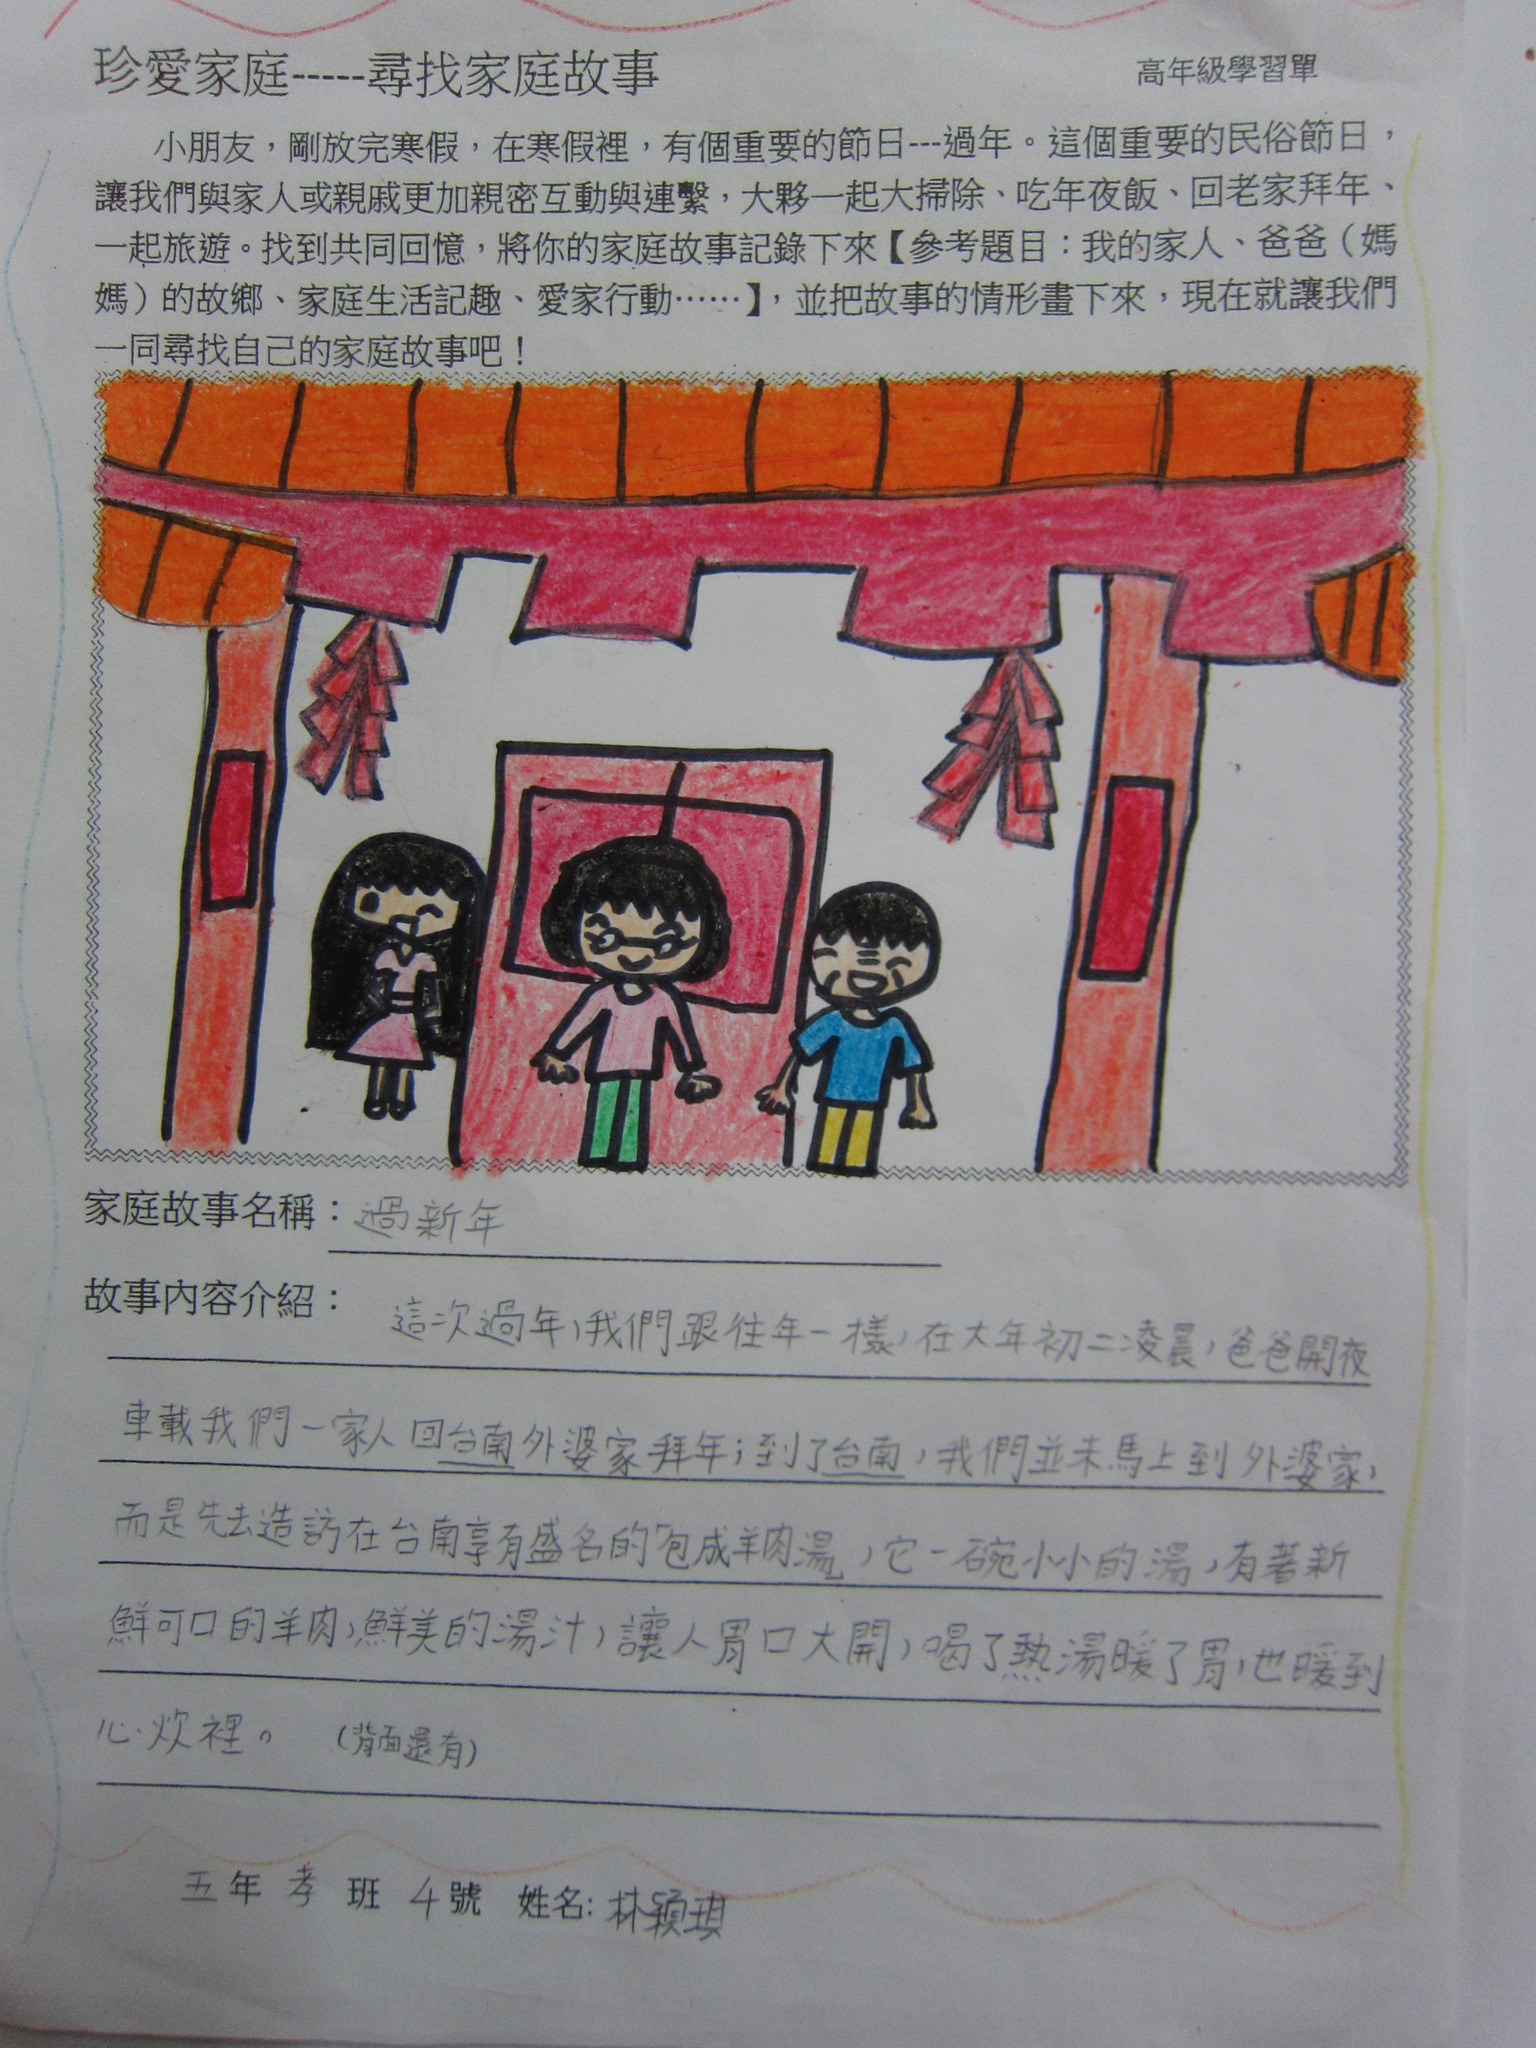 珍愛家庭-----尋找家庭故事
高年級學習單
小朋友，剛放完寒假，在寒假裡，有個重要的節日---過年。這個重要的民俗節日，
讓我們與家人或親戚更加親密互動與連繫，大夥一起大掃除、吃年夜飯、回老家拜年、
一起旅遊。找到共同回憶，將你的家庭故事記錄下來【參考題目：我的家人、爸爸（媽
媽）的故鄉、家庭生活記趣、愛家行動……】，並把故事的情形畫下來，現在就讓我們
一同尋找自己的家庭故事吧！
家庭故事名稱：過新年
故事內容介紹：這次過年，我們跟往年一樣，在大年初二凌晨，爸爸開夜
車載我們一家人回台南外婆家拜年；到了台南，我們並未馬上到外婆家，
而是先去造訪在台南享有盛名的「包成羊肉湯」，它一碗小小的湯，有著新
鮮可口的羊肉，鮮美的湯汁，讓人胃口大開，喝了熱湯暖了胃，也暖到
心炊裡。（背面還有）
五年孝班4號 姓名:林穎琪